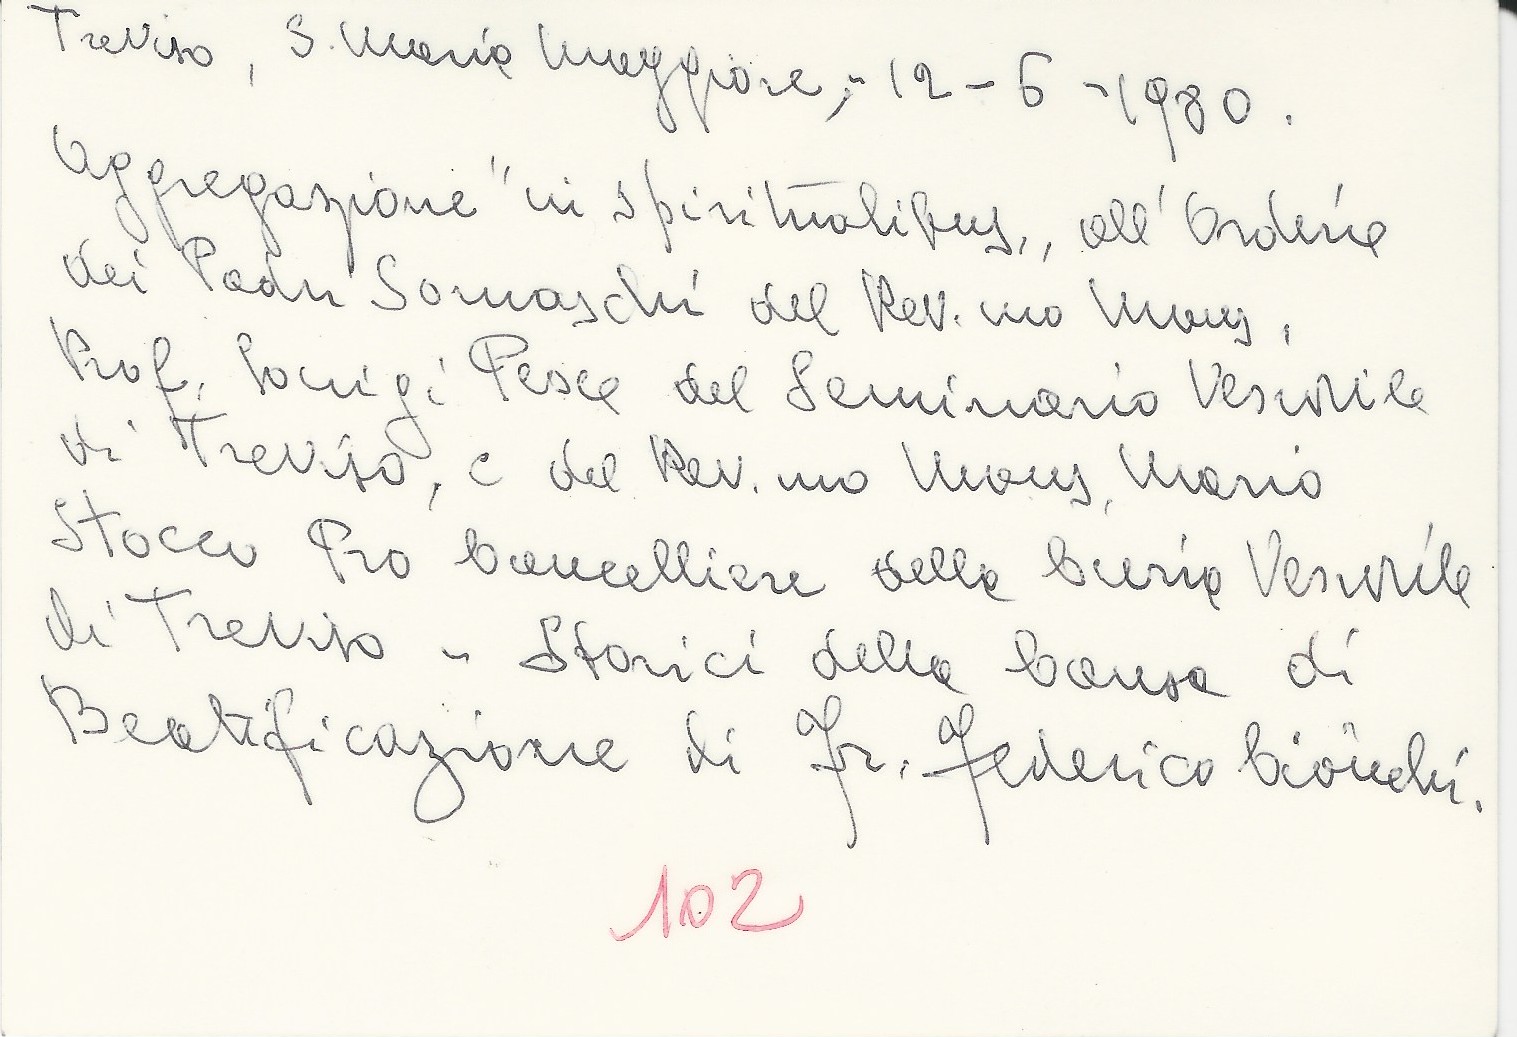 Treviso, S. Maria Maggiore, - 12 - 6 - 1980.
Aggregazione "in spiritualibus,, all'Ordine
dei Padri Somaschi del Rev.mo Mons.
Prof. Luigi Pesce del Seminario Vescovile
di Treviso, e del Rev.mo Mons. Mario
Stocco Pro Cancelliere della Curia Vescovile
di Treviso - Storici della Causa di
Beatificazione di Fr. Federico Cionchi.
102